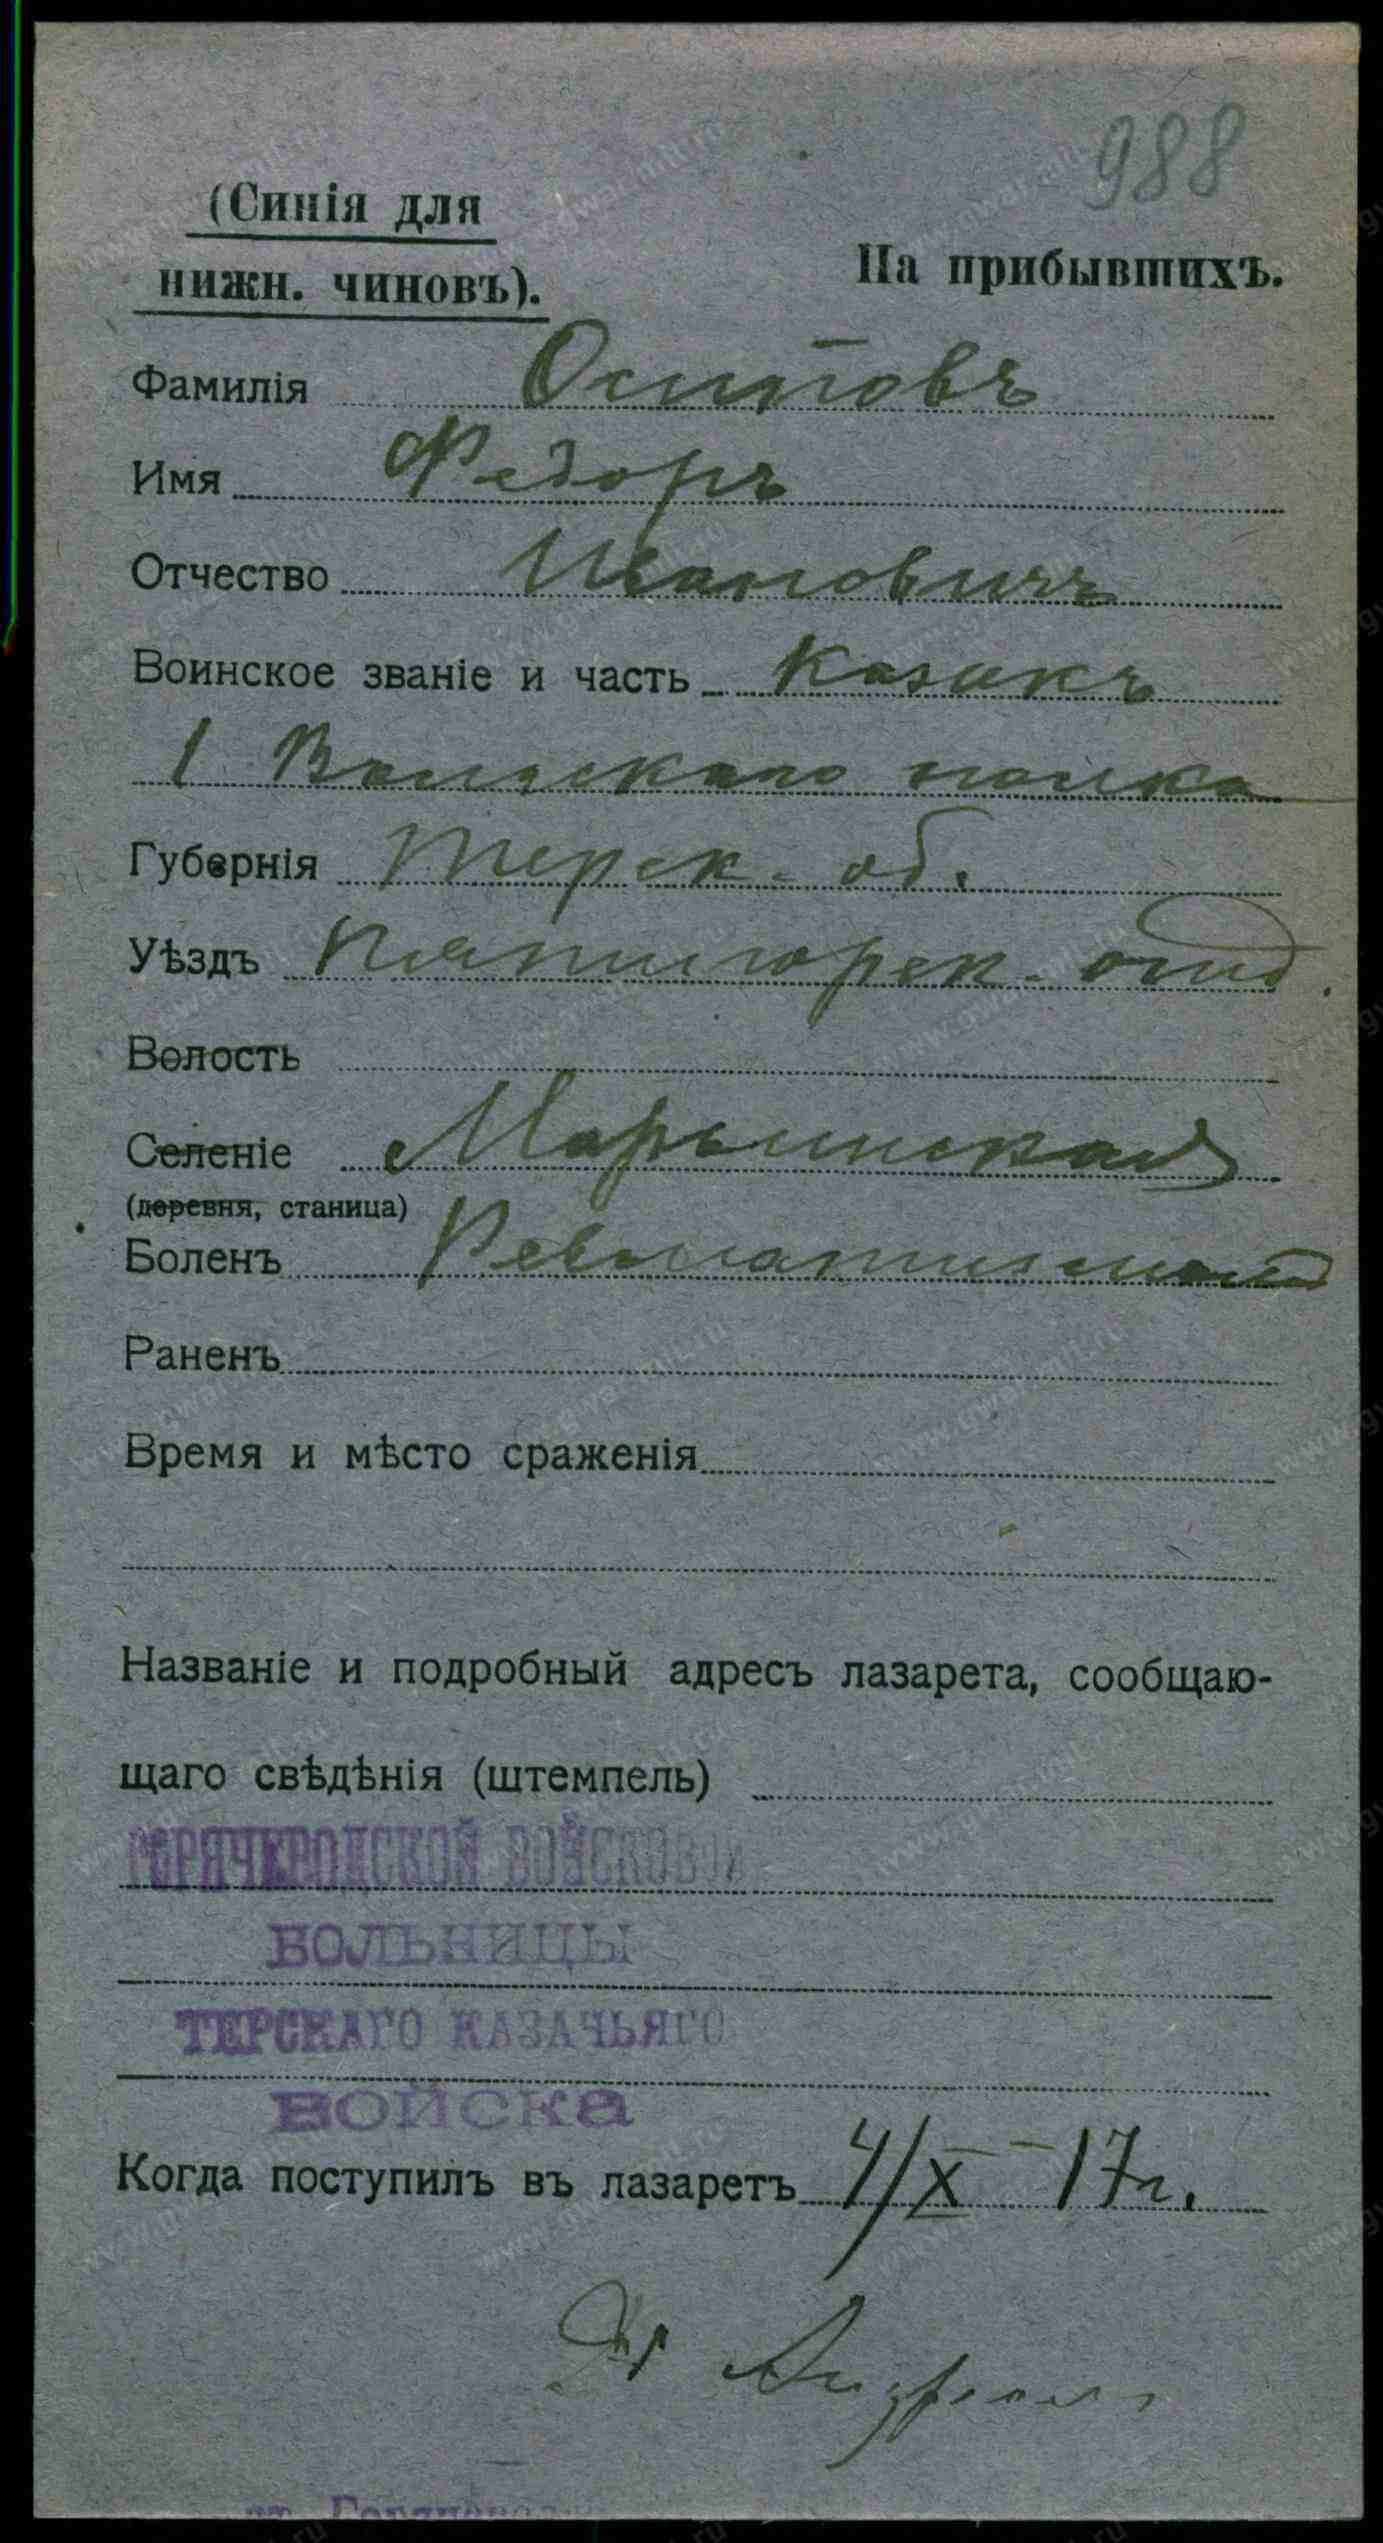 988
(Синія для
нижн. чиновъ).
На прибывшихъ.
Фамилія Осиповъ
Имя Федоръ
Отчество Ивановичъ
Воинское званіе и часть Казакъ
1 Волгскаго полка
Губернія Терск. об.
Уѣздъ Пятигорск. отд.
Волость
Селеніе Марьинская
(деревня, станица)
Боленъ Ревматизмомъ
Раненъ
Время и мѣсто сраженія
Названіе и подробный адресъ лазарета, сообщаю-
щаго свѣдѣнія (штемпель)
ГОРЯЧЕВОДСКОЙ ВОЙСКОВОЙ
БОЛЬНИЦЫ
ТЕРСКАГО КАЗАЧЬЯГО
ВОЙСКА
Когда поступилъ въ лазаретъ 4/X - 17 г.